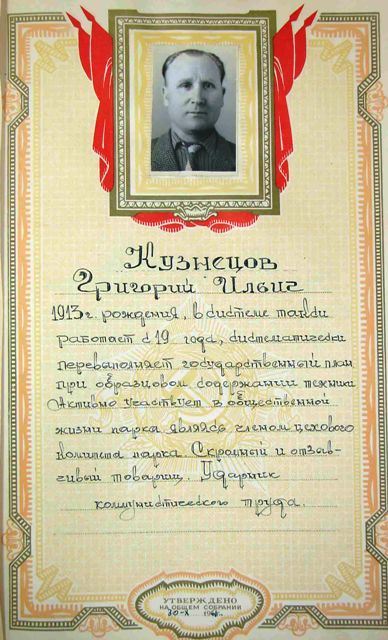 Кузнецов
Григорий Ильич
1913 г. рождения, в системе такси
работает с 19 года, систематически
перевыполняет государственный план
при образцовом содержании техники
Активно участвует в общественной
жизни парка являясь членом цехового
комитета парка. Скромный и отзыв-
чивый товарищ. Ударник
коммунистического труда.
УТВЕРЖДЕНО
НА ОБЩЕМ СОБРАНИИ
30-X 196 г.